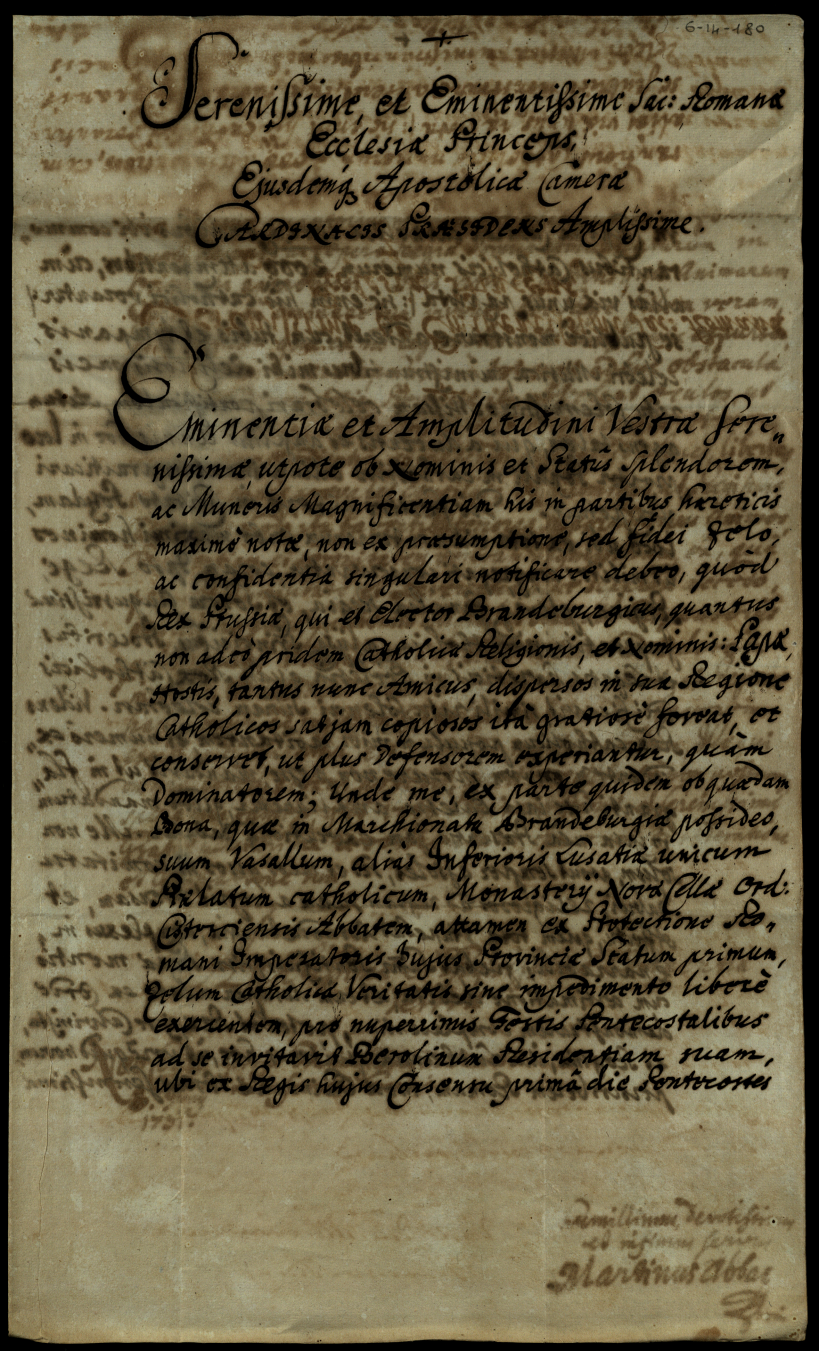 6-14-180
+
Serenissime, et Eminentissime Sac: Romanæ
Ecclesiæ Princeps,
Ejusdemq Apostolicæ Cameræ
CARDINALIS PRÆSIDENS Amplissime.
Eminentiæ et Amplitudini Vestræ Sere„
nissimæ, utpote ob Nominis et Statûs splendorem,
ac Muneris Magnificentiam his in partibus hæreticis
maximè notæ, non ex præsumptione, sed fidei Zelo,
ac confidentiâ singulari notificare debeo, quòd
Rex Prussiæ, qui et Elector Brandeburgicus, quantus
non adeò pridem Catholicæ Religionis, et Nominis: Papæ,
Hostis, tantus nunc Amicus, dispersos in sua Regione
Catholicos satjam copiosos ità gratiosè foveat, et
conservet, ut plus Defensorem experiantur, quàm
Dominatorem; Unde me, ex parte quidem ob quædam
Bona, quæ in Marchionatu Brandeburgiæ possideo,
suum Vasallum, aliàs Inferioris Lusatiæ unicum
Prælatum catholicum, Monasterÿ Novæ Cellæ Ord:
Cisterciensis Abbatem, attamen ex Protectione Ro„
mani Imperatoris hujus Provinciæ Statum primum,
Zelum Catholicæ Veritatis sine impedimento liberè
exercentem, pro nuperrimis Festis Pentecostalibus
ad se invitavit Berolinum Residentiam suam,
ubi ex Regis hujus Consensu primâ die Pentecostes
Martinus Abbas